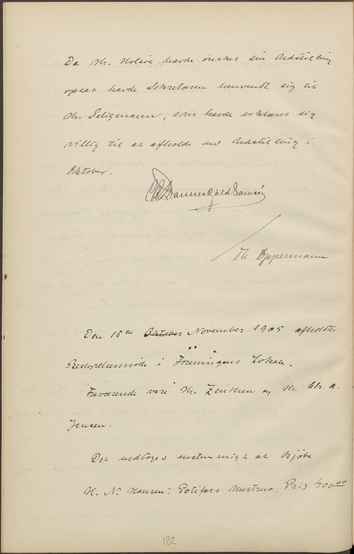 Da Hr. Holsøe havde ønsket sin Udstilling
opsat havde Sekretæren henvendt sig til
Hr. Seligmann, som havde erklæret sig
villig til at afholde en Udstilling i
Oktober.
Th Oppermann
Den 15de Oktober November 1905 afholdtes
Bestyrelsesmøde i Foreningens Lokale.
Fraværende vare Hr. Zeuthen og Hr. Chr. A.
Jensen.
Der vedtoges enstemmigt at kjøbe
H. N. Hansen: Polifars Hustru. Pris 400
182